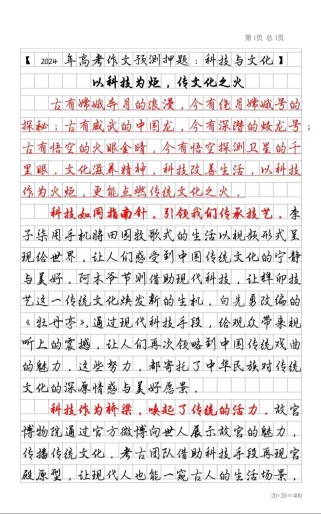 第1页 总3页
【 2024 年高考作文预测押题：科技与文化】
以科技为炬，传文化之火
古有嫦娥奔月的浪漫，今有绕月嫦娥号的
探秘；古有威武的中国龙，今有深潜的蛟龙号
古有悟空的火眼金睛，今有悟空探测卫星的千
里眼。文化滋养精神，科技改善生活，以科技
作为火炬，更能点燃传统文化之火。
科技如同指南针，引领我们传承技艺。李
子柒用手机将田园牧歌式的生活以视频形式呈
现给世界，让人们感受到中国传统文化的宁静
与美好。阿木爷爷则借助现代科技，让榫卯技
艺这一传统文化焕发新的生机。白先勇改编的
《牡丹亭》，通过现代科技手段，给观众带来视
听上的震撼，让人们再次领略到中国传统戏曲
的魅力。这些努力，都寄托了中华民族对传统
文化的深厚情感与美好愿景。
科技作为桥梁，唤起了传统的活力。故宫
博物院通过官方微博向世人展示故宫的魅力，
传播传统文化。考古团队借助科技手段再现宫
殿原型，让现代人也能一窥古人的生活场景，
20×20=400